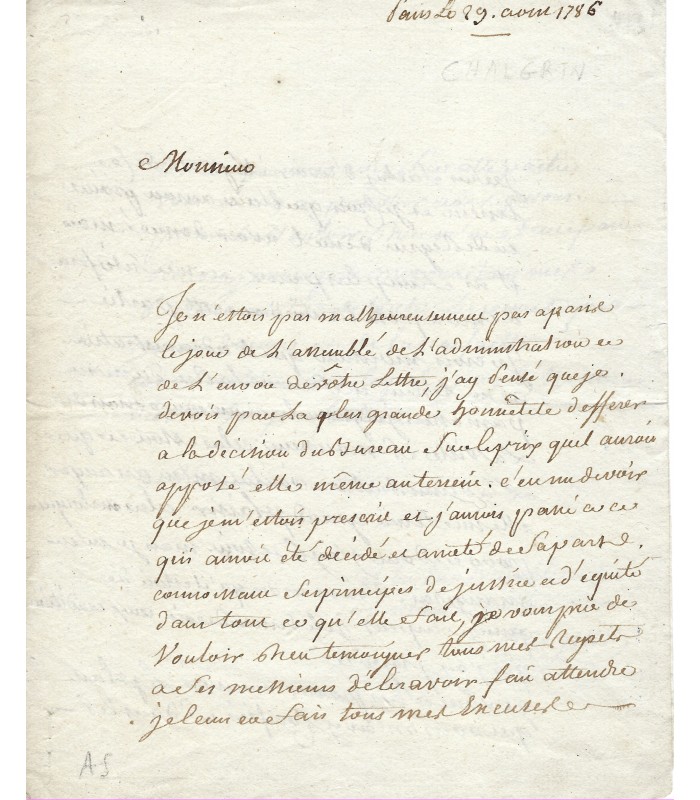 Paris Le 29. avril 1786
CHALGRIN
Monsieur
Je n'ettois par malheureusement pas aparis
le jour de L'assemblé de L'administration et
de L'envoi de vôtre Lettre, j'ay pensé que je
devois par La plus grande honnêteté defferer
a la decision du Bureau Sur le prix quel auroit
apposé elle même au terrein. c'en un devoir
que je m'ettois prescrit et j'aurois passé a ce
qui auroit été décidé et arreté de Sa part.
connoissant Ses principes de justice et d'equité
dans tout ce qu'elle fait, je vous prie de
Vouloir bien temoigner tous mes Regrets
a Ses messieurs de les avoir fait attendre
je leur en fais tous mes Excuses
AS